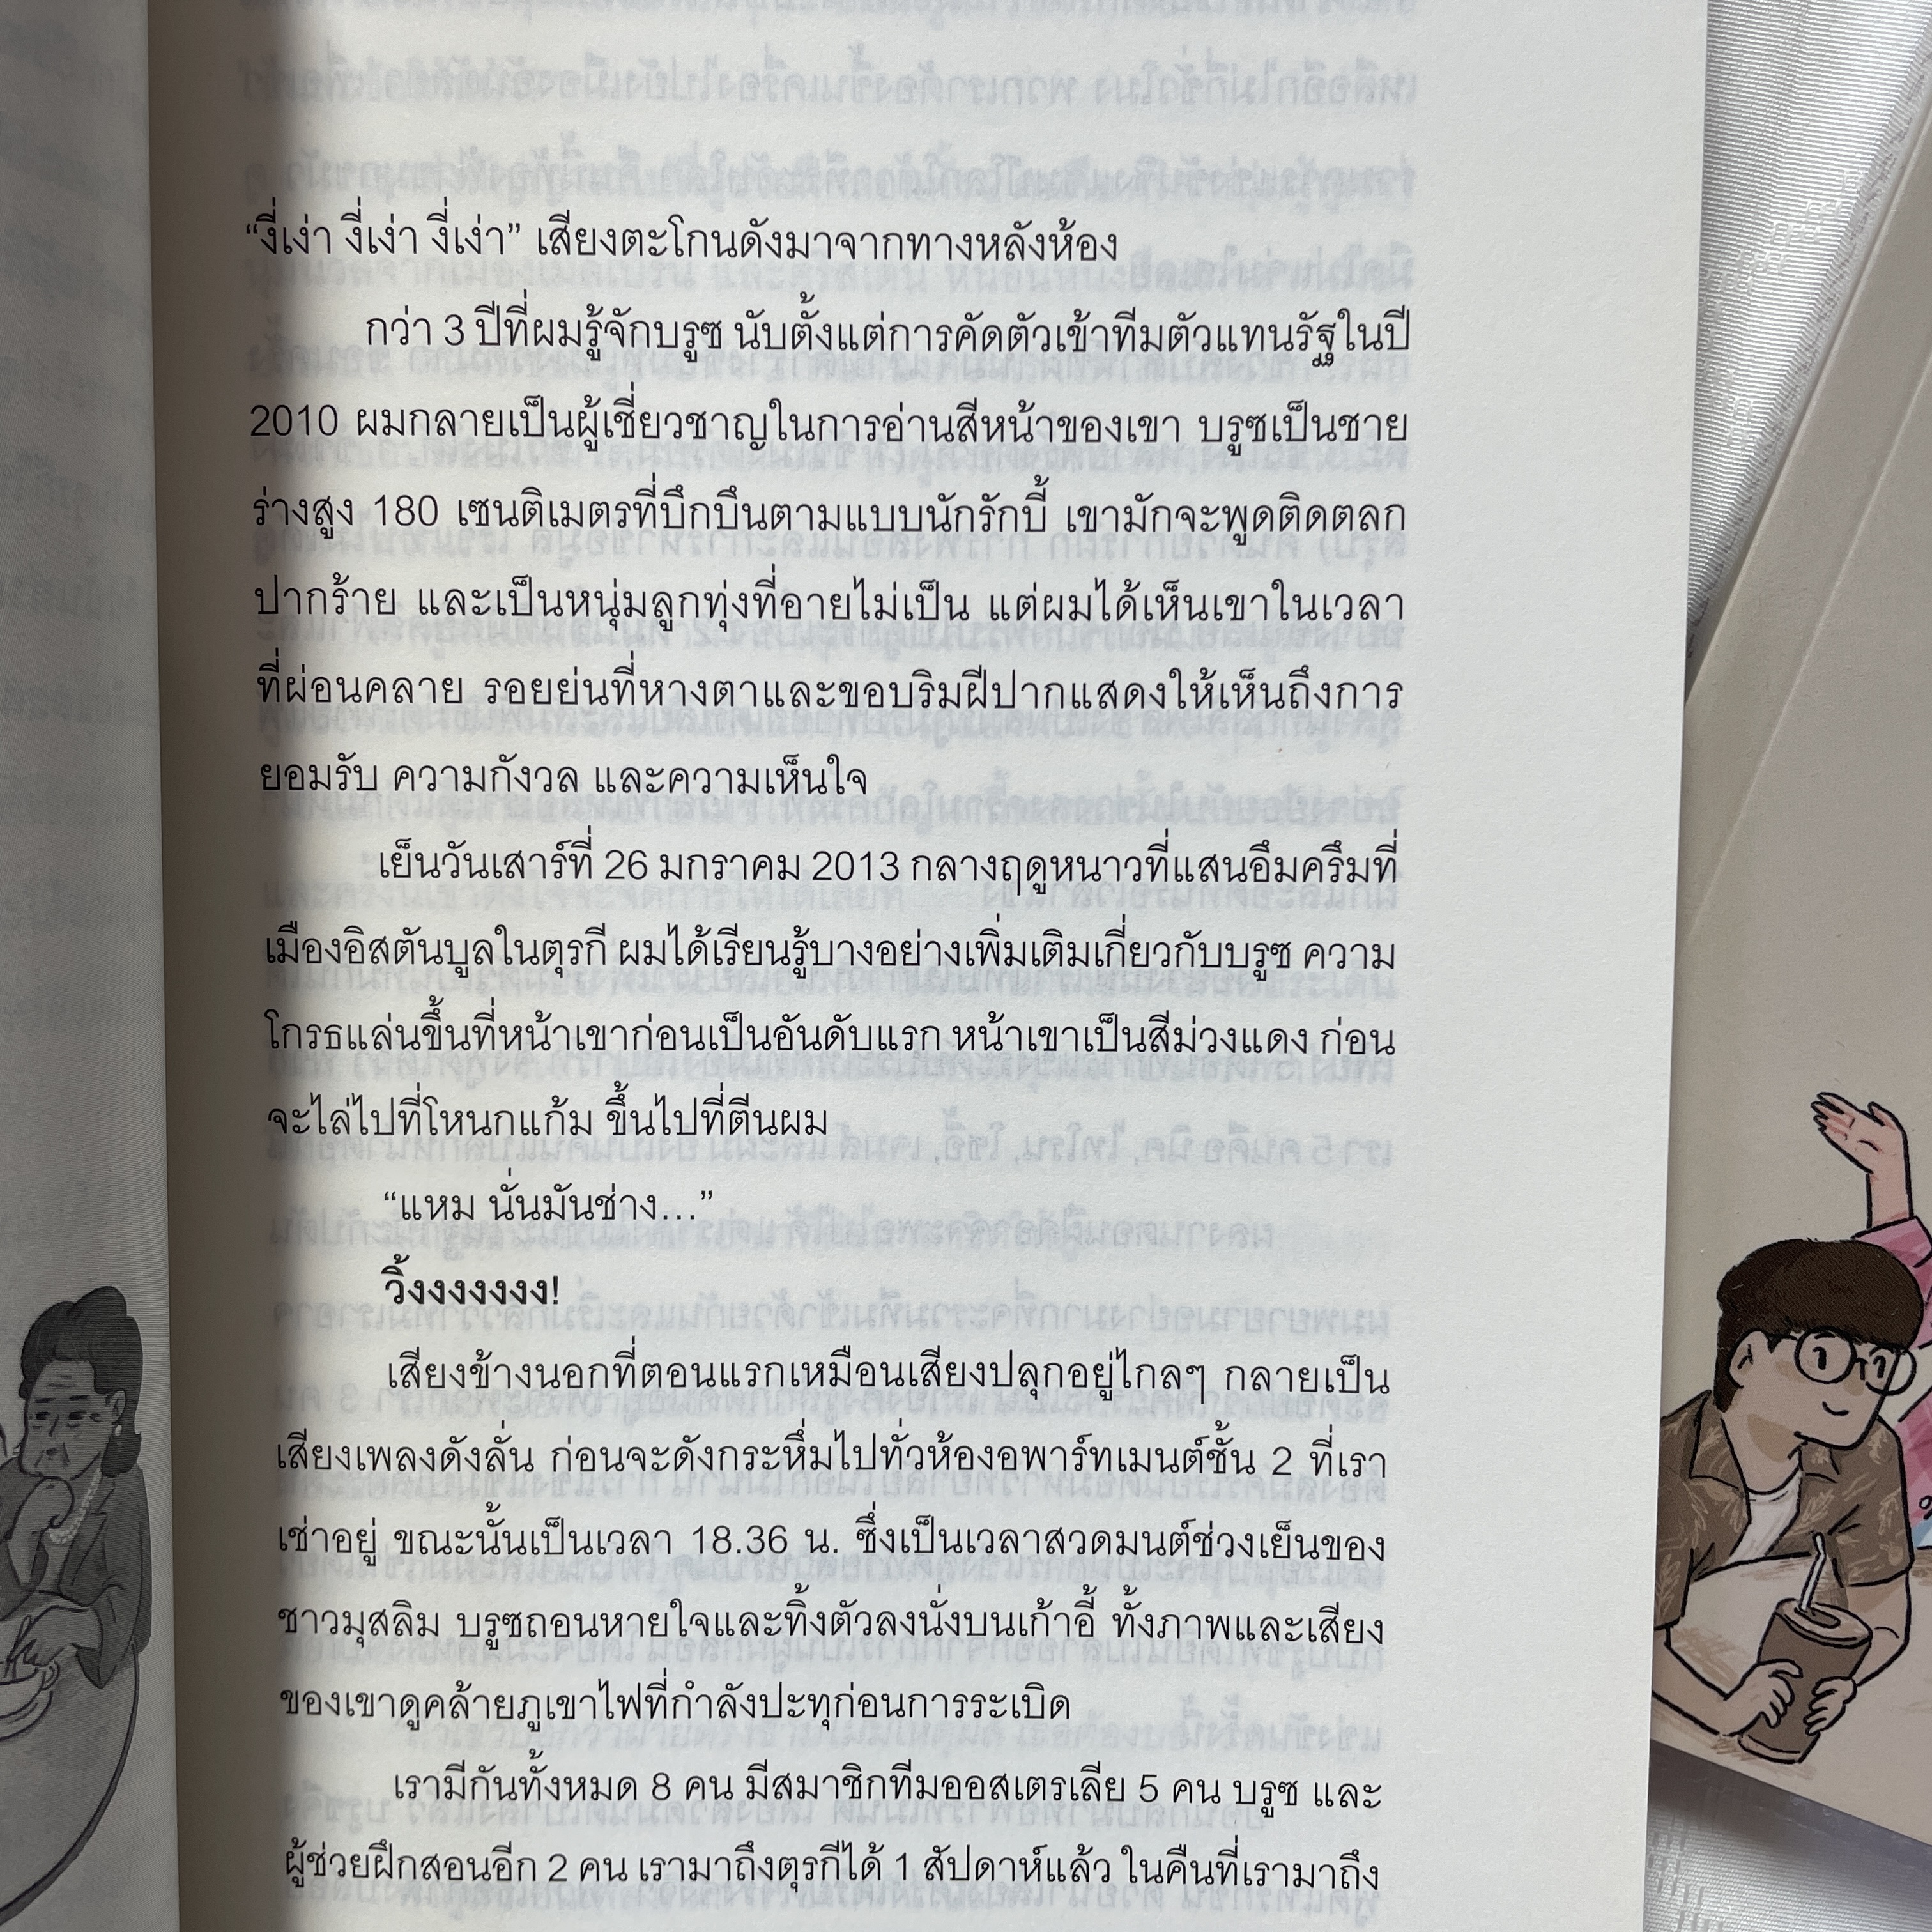 “งี่เง่า งี่เง่า งี่เง่า” เสียงตะโกนดังมาจากทางหลังห้อง
กว่า 3 ปีที่ผมรู้จักบรูซ นับตั้งแต่การคัดตัวเข้าทีมตัวแทนรัฐในปี
2010 ผมกลายเป็นผู้เชี่ยวชาญในการอ่านสีหน้าของเขา บรูซเป็นชาย
ร่างสูง 180 เซนติเมตรที่บึกบึนตามแบบนักรักบี้ เขามักจะพูดติดตลก
ปากร้าย และเป็นหนุ่มลูกทุ่งที่อายไม่เป็น แต่ผมได้เห็นเขาในเวลา
ที่ผ่อนคลาย รอยย่นที่หางตาและขอบริมฝีปากแสดงให้เห็นถึงการ
ยอมรับ ความกังวล และความเห็นใจ
เย็นวันเสาร์ที่ 26 มกราคม 2013 กลางฤดูหนาวที่แสนอึมครึมที่
เมืองอิสตันบูลในตุรกี ผมได้เรียนรู้บางอย่างเพิ่มเติมเกี่ยวกับบรูซ ความ
โกรธแล่นขึ้นที่หน้าเขาก่อนเป็นอันดับแรก หน้าเขาเป็นสีม่วงแดง ก่อน
จะไล่ไปที่โหนกแก้ม ขึ้นไปที่ตีนผม
“แหม นั่นมันช่าง...”
วิ้งงงงงงงง!
เสียงข้างนอกที่ตอนแรกเหมือนเสียงปลุกอยู่ไกลๆ กลายเป็น
เสียงเพลงดังลั่น ก่อนจะดังกระหึ่มไปทั่วห้องอพาร์ทเมนต์ชั้น 2 ที่เรา
เช่าอยู่ ขณะนั้นเป็นเวลา 18.36 น. ซึ่งเป็นเวลาสวดมนต์ช่วงเย็นของ
ชาวมุสลิม บรูซถอนหายใจและทิ้งตัวลงนั่งบนเก้าอี้ ทั้งภาพและเสียง
ของเขาดูคล้ายภูเขาไฟที่กำลังปะทุก่อนการระเบิด
เรามีกันทั้งหมด 8 คน มีสมาชิกทีมออสเตรเลีย 5 คน บรูซ และ
ผู้ช่วยฝึกสอนอีก 2 คน เรามาถึงตุรกีได้ 1 สัปดาห์แล้ว ในคืนที่เรามาถึง